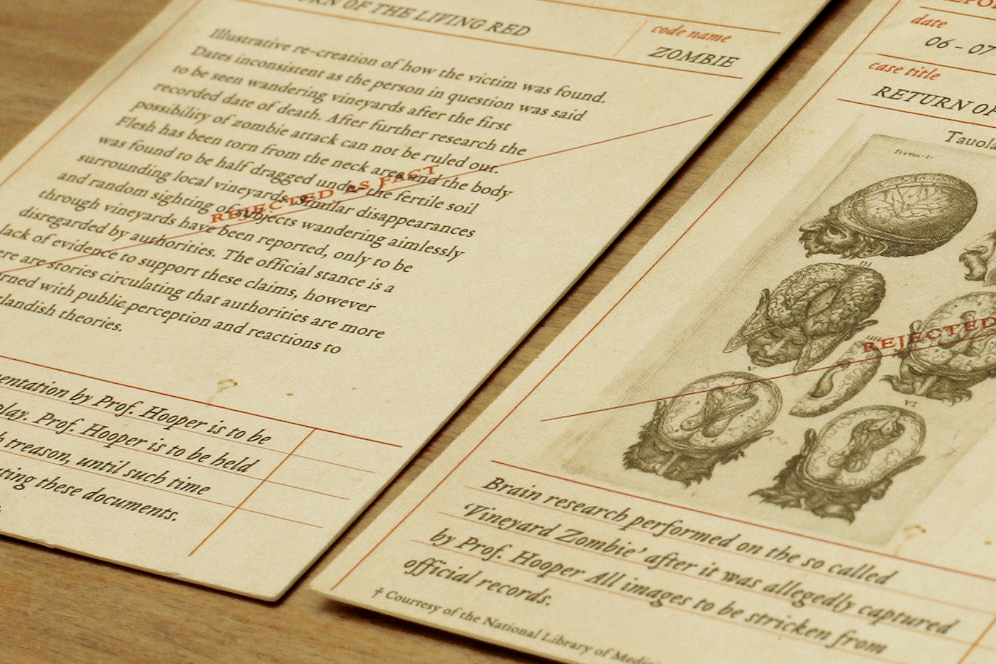 OF THE LIVING RED
code name
ZOMBIE
Illustrative re-creation of how the victim was found.
Dates inconsistent as the person in question was said
to be seen wandering vineyards after the first
recorded date of death. After further research the
possibility of zombie attack can not be ruled out.
Flesh has been torn from the neck area and the body
was found to be half dragged under the fertile soil
surrounding local vineyards. Similar disappearances
and random sighting of subjects wandering aimlessly
through vineyards have been reported, only to be
disregarded by authorities. The official stance is a
lack of evidence to support these claims, however
are stories circulating that authorities are more
with public perception and reactions to
theories.
REJECTED AS FACT
by Prof. Hooper is to be
Prof. Hooper is to be held
treason, until such time
these documents.
date
06 - 07
case title
RETURN OF
Tavola
REJECTED
Brain research performed on the so called
'Vineyard Zombie' after it was allegedly captured
by Prof. Hooper All images to be stricken from
official records.
† Courtesy of the National Library of